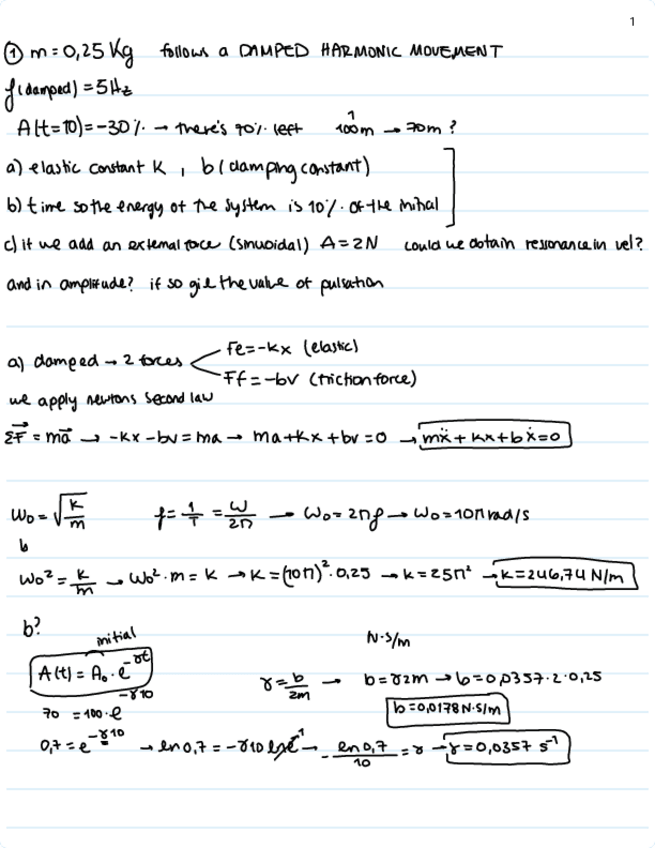 1
① m = 0,25 Kg follows a DAMPED HARMONIC MOVEMENT
f(damped) = 5Hz
A(t=10) = -30% → there's 70% left 100m → 70m ?
a) elastic constant K , b (damping constant)
b) time so the energy of the system is 10% of the initial
c) if we add an external force (sinuoidal) A = 2N could we obtain ressonance in vel?
and in amplitude? if so give the value of pulsation
a) damped → 2 forces
Fe = -kx (elastic)
Ff = -bv (friction force)
we apply newtons second law
ΣF⃗ = ma⃗ → -kx - bv = ma → ma + kx + bv = 0 → mẍ + kx + bẋ = 0
ω₀ = √(k/m) f = 1/T = ω/2π → ω₀ = 2πf → ω₀ = 10π rad/s
ω₀² = k/m → ω₀² · m = k → k = (10π)² · 0,25 → k = 25π² → k = 246,74 N/m
b?
initial N·S/m
A(t) = A₀ · e^-γt γ = b/2m → b = γ2m → b = 0,0357 · 2 · 0,25
70 = 100 · e^-γ10 b = 0,0178 N·S/m
0,7 = e^-γ10 → ln 0,7 = -γ10 lne¹ → - ln 0,7/10 = γ → γ = 0,0357 s⁻¹